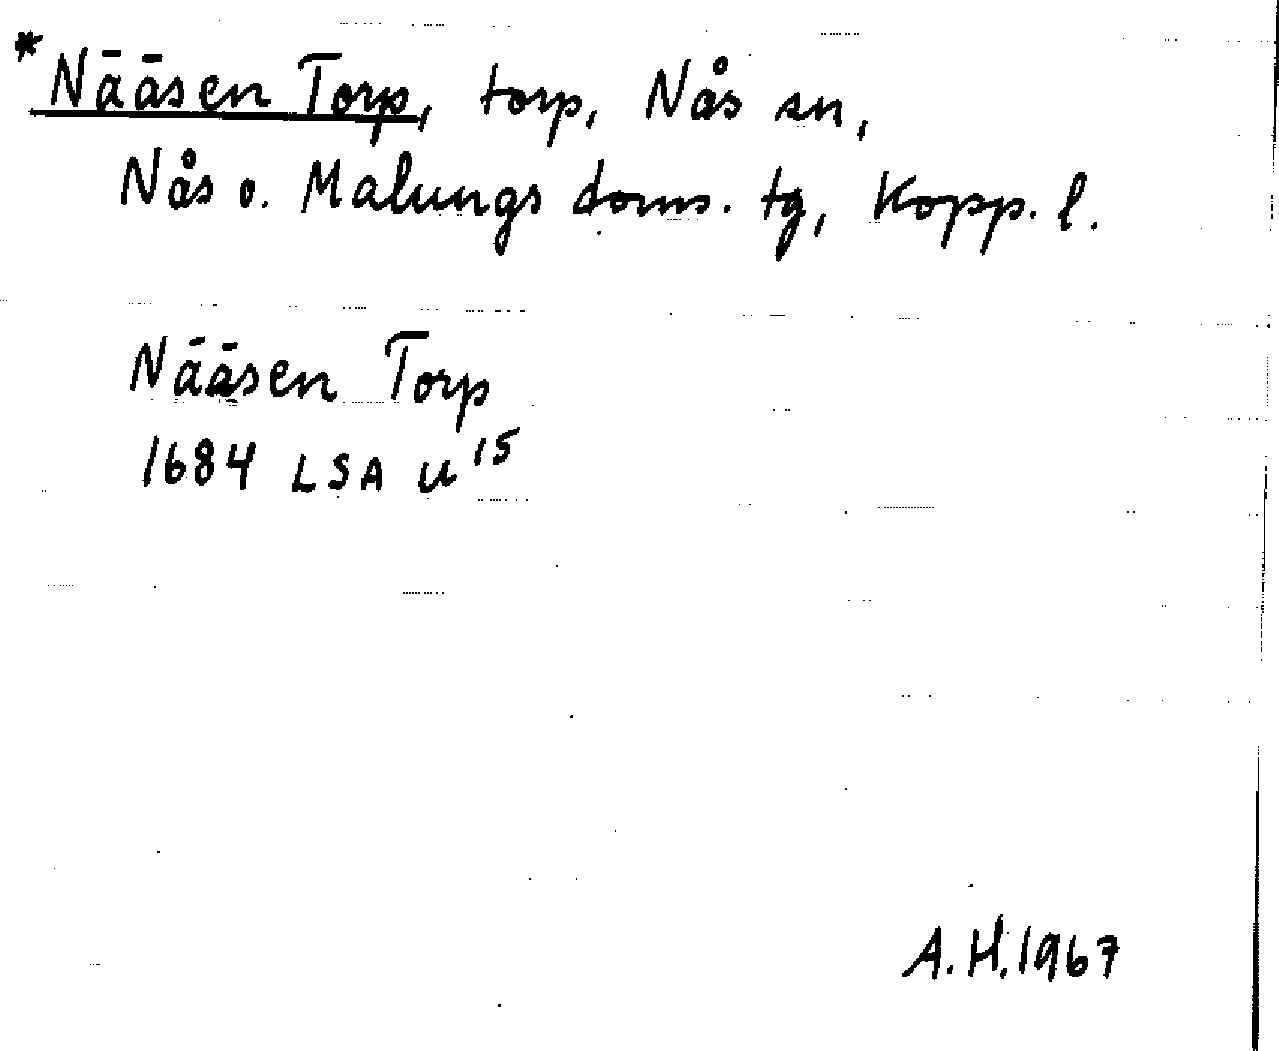 *Nääsen Torp, torp, Nås sn,
Nås o. Malungs doms. tg, Kopp. l.
Nääsen Torp
1684 LSA U¹⁵
A.H. 1967